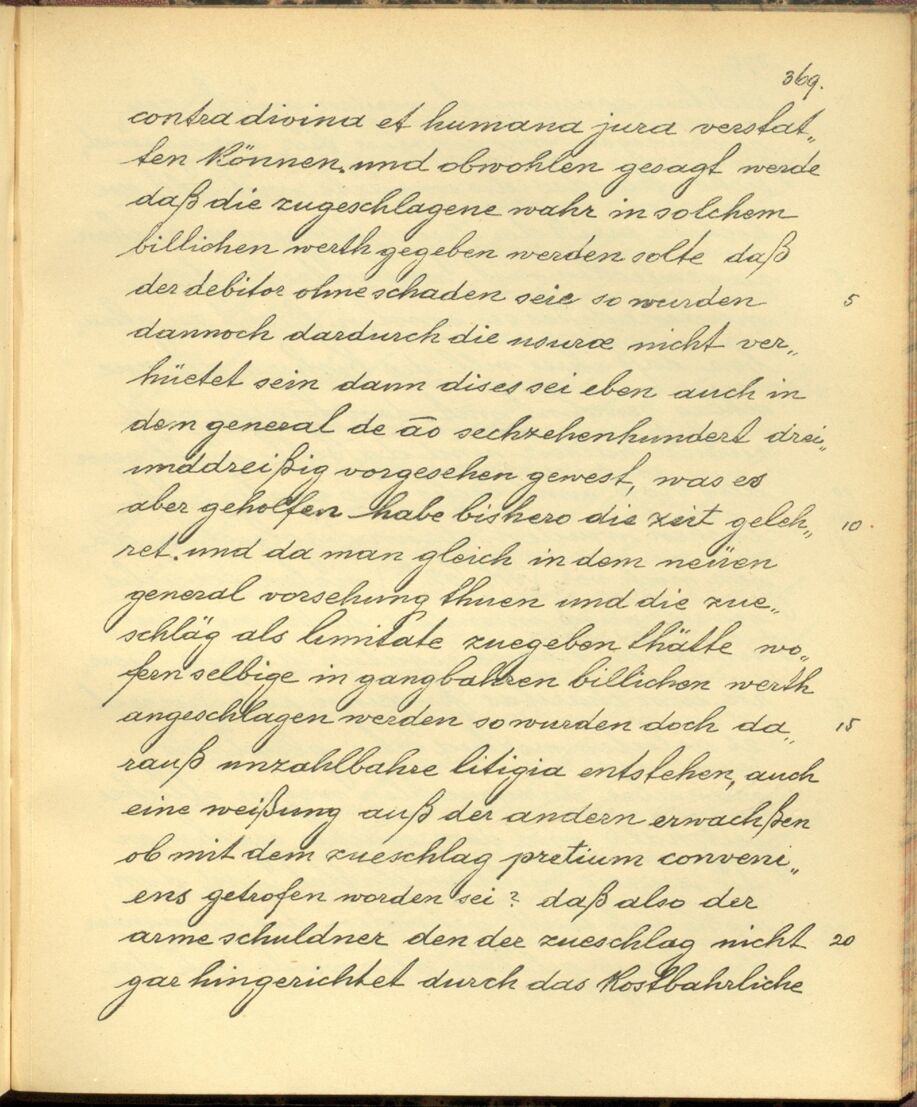 369.
contra divina et humana jura verstat„
ten können. und obwohlen gesagt werde
daß die zugeschlagene wahr in solchem
billichen werth gegeben werden solte daß
der debitor ohne schaden seie so wurden 5
dannoch dardurch die usuræ nicht ver„
hüetet sein dann dises sei eben auch in
dem general de āo sechzehenhundert drei„
unddreißig vorgesehen gewest, was es
aber geholfen habe bishero die zeit geleh„ 10
ret. und da man gleich in dem neüen
general vorsehung thuen und die zue„
schläg als limitate zuegeben thätte wo„
fern selbige in gangbahren billichen werth
angeschlagen werden so wurden doch da„ 15
rauß unzahlbahre litigia entstehen, auch
eine weißung auß der andern erwachßen
ob mit dem zueschlag pretium conveni„
ens getrofen worden sei? daß also der
arme schuldner den der zueschlag nicht 20
gar hingerichtet durch das kostbahrliche